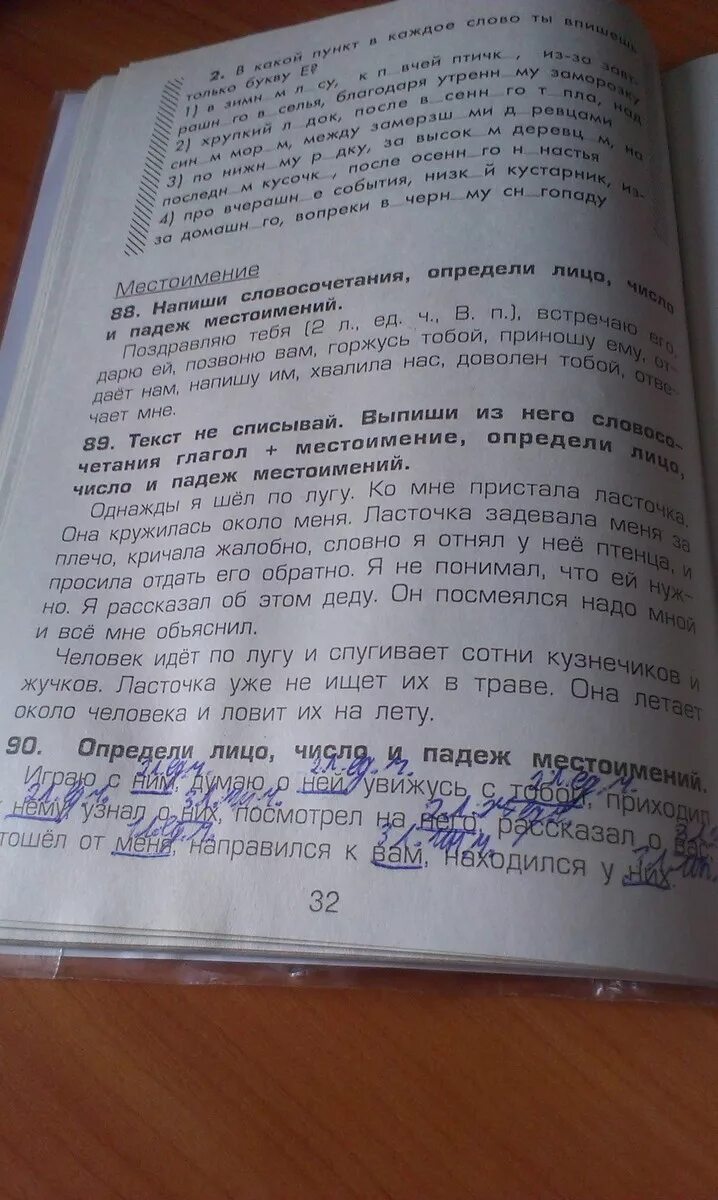 2. В какой пункт в каждое слово ты впишешь
только букву Е?
1) в зимн_м л_су, к п_вчей птичк_, из-за завт-
рашн_го в_селья, благодаря утренн_му заморозку
2) хрупкий л_док, после в_сенн_го т_пла, над
син_м мор_м, между замерзш_ми д_ревцами
3) по нижн_му р_дку, за высок_м деревц_м, на
последн_м кусочк_, после осенн_го н_настья
4) про вчерашн_е события, низк_й кустарник, из-
за домашн_го, вопреки в черн_му сн_гопаду
Местоимение
88. Напиши словосочетания, определи лицо, число
и падеж местоимений.
Поздравляю тебя (2 л., ед. ч., В. п.), встречаю его,
дарю ей, позвоню вам, горжусь тобой, приношу ему, от-
даёт нам, напишу им, хвалила нас, доволен тобой, отве-
чает мне.
89. Текст не списывай. Выпиши из него словосо-
четания глагол + местоимение, определи лицо,
число и падеж местоимений.
Однажды я шёл по лугу. Ко мне пристала ласточка.
Она кружилась около меня. Ласточка задевала меня за
плечо, кричала жалобно, словно я отнял у неё птенца, и
просила отдать его обратно. Я не понимал, что ей нуж-
но. Я рассказал об этом деду. Он посмеялся надо мной
и всё мне объяснил.
Человек идёт по лугу и спугивает сотни кузнечиков и
жучков. Ласточка уже не ищет их в траве. Она летает
около человека и ловит их на лету.
90. Определи лицо, число и падеж местоимений.
Играю с ним, думаю о ней, увижусь с тобой, приходил
нему, узнал о них, посмотрел на него, рассказал о вас
тошёл от меня, направился к вам, находился у них.
32